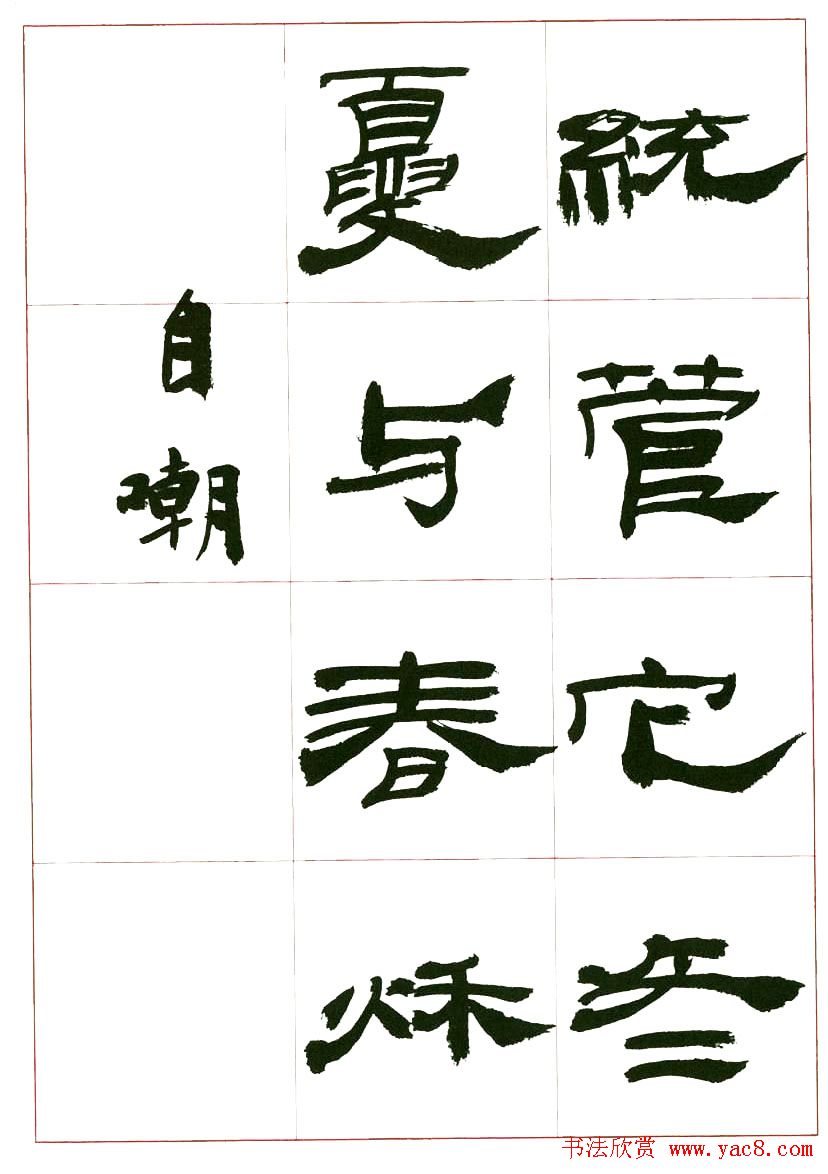 統管它冬
夏与春秌
自嘲
书法欣赏 www.yac8.com